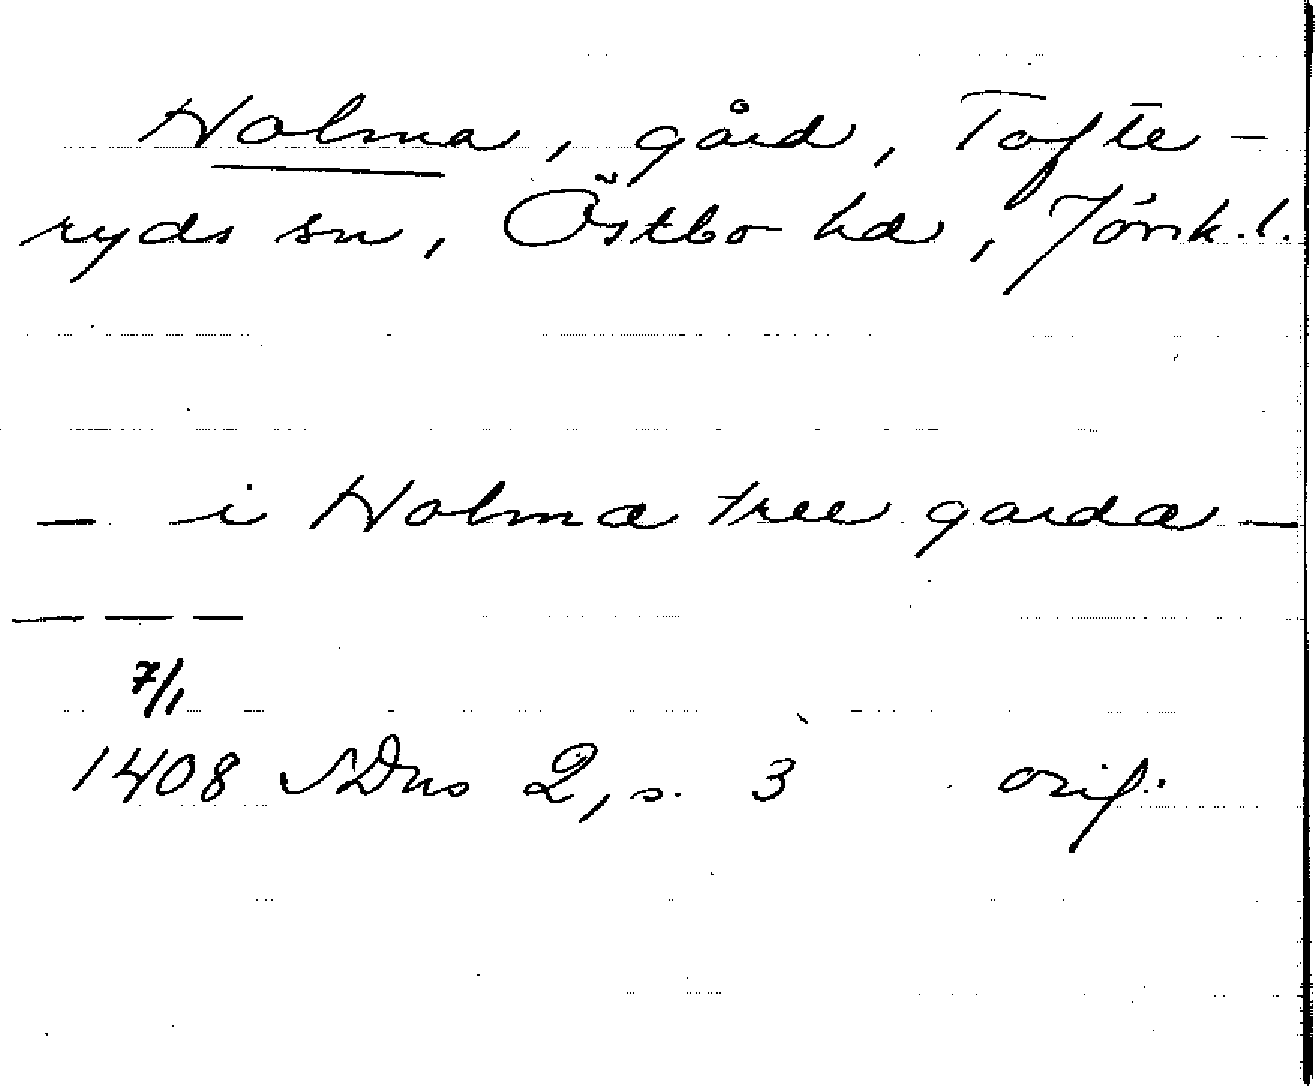 Holma, gård, Tofte-
ryds sn, Östbo hd, Jönk.l.
— i Holma tree garda —
— — —
7/1
1408 SDns 2, s. 3 orig.